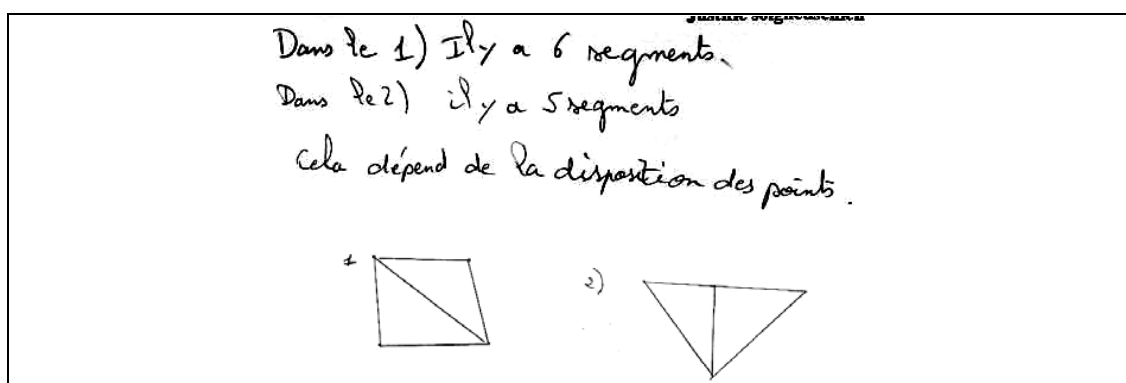 Dans le 1) Il y a 6 segments.
Dans le 2) il y a 5 segments
Cela dépend de la disposition des points.
1
2)